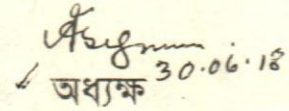 30.06.18
অধ্যক্ষ